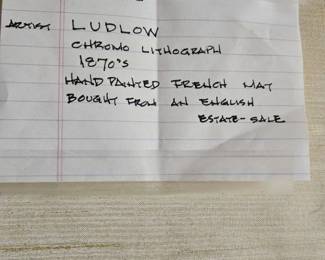 ARTIST LUDLOW
CHROMO LITHOGRAPH
1870'S
HAND PAINTED FRENCH MAT
BOUGHT FROM AN ENGLISH
ESTATE-SALE